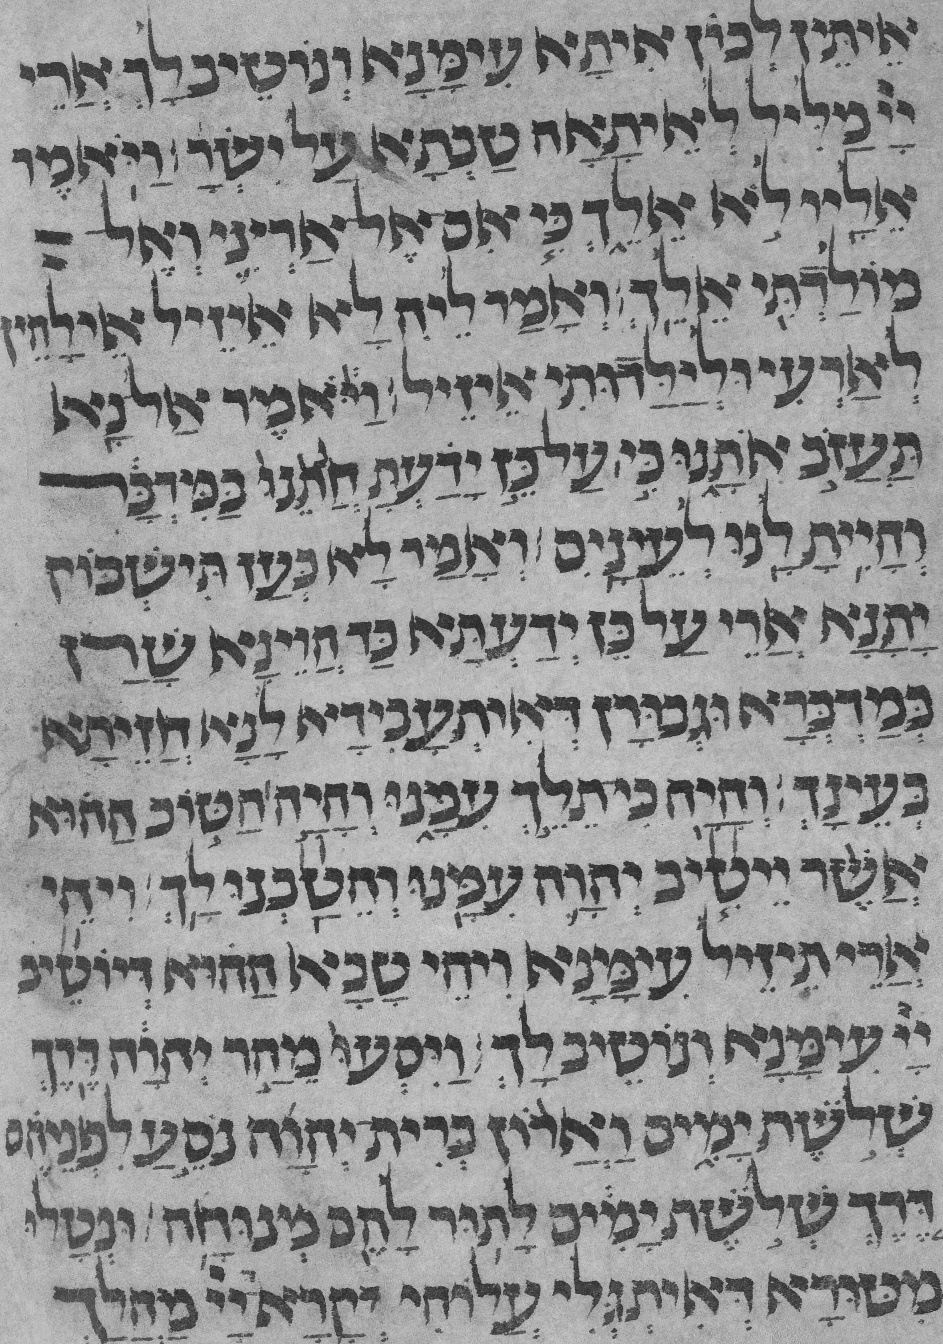 איתין לכון איתא עימנא ונוטיב לך ארי
ייי מליל לאיתאה טבתא על ישר׳ ויאמר
אליו לא אלך כי אם אל ארצי ואל
מולדתי אלך ואמר ליה לא איזיל אילהין
לארעי ולילדותי איזיל ויאמר אל נא
תעזב אתנו כי על כן ידעת חנתנו במדבר
והיית לנו לעינים ואמר לא כען תישבוק
יתנא ארי על כן ידעתא כד הוינא שרן
במדברא וגבורן דאיתעבידא לנא חזיתא
בעינך והיה כי תלך עמנו והיה הטוב ההוא
אשר ייטיב יהוה עמנו והטבנו לך ויהי
ארי תיזיל עימנא ויהי טבא ההוא דיוטיב
ייי עימנא ונוטיב לך ויסעו מהר יהוה דרך
שלשת ימים וארון ברית יהוה נסע לפניהם
דרך שלשת ימים לתור להם מנוחה ונטלו
מטורא דאיתגלי עלוהי יקרא דייי מהלך